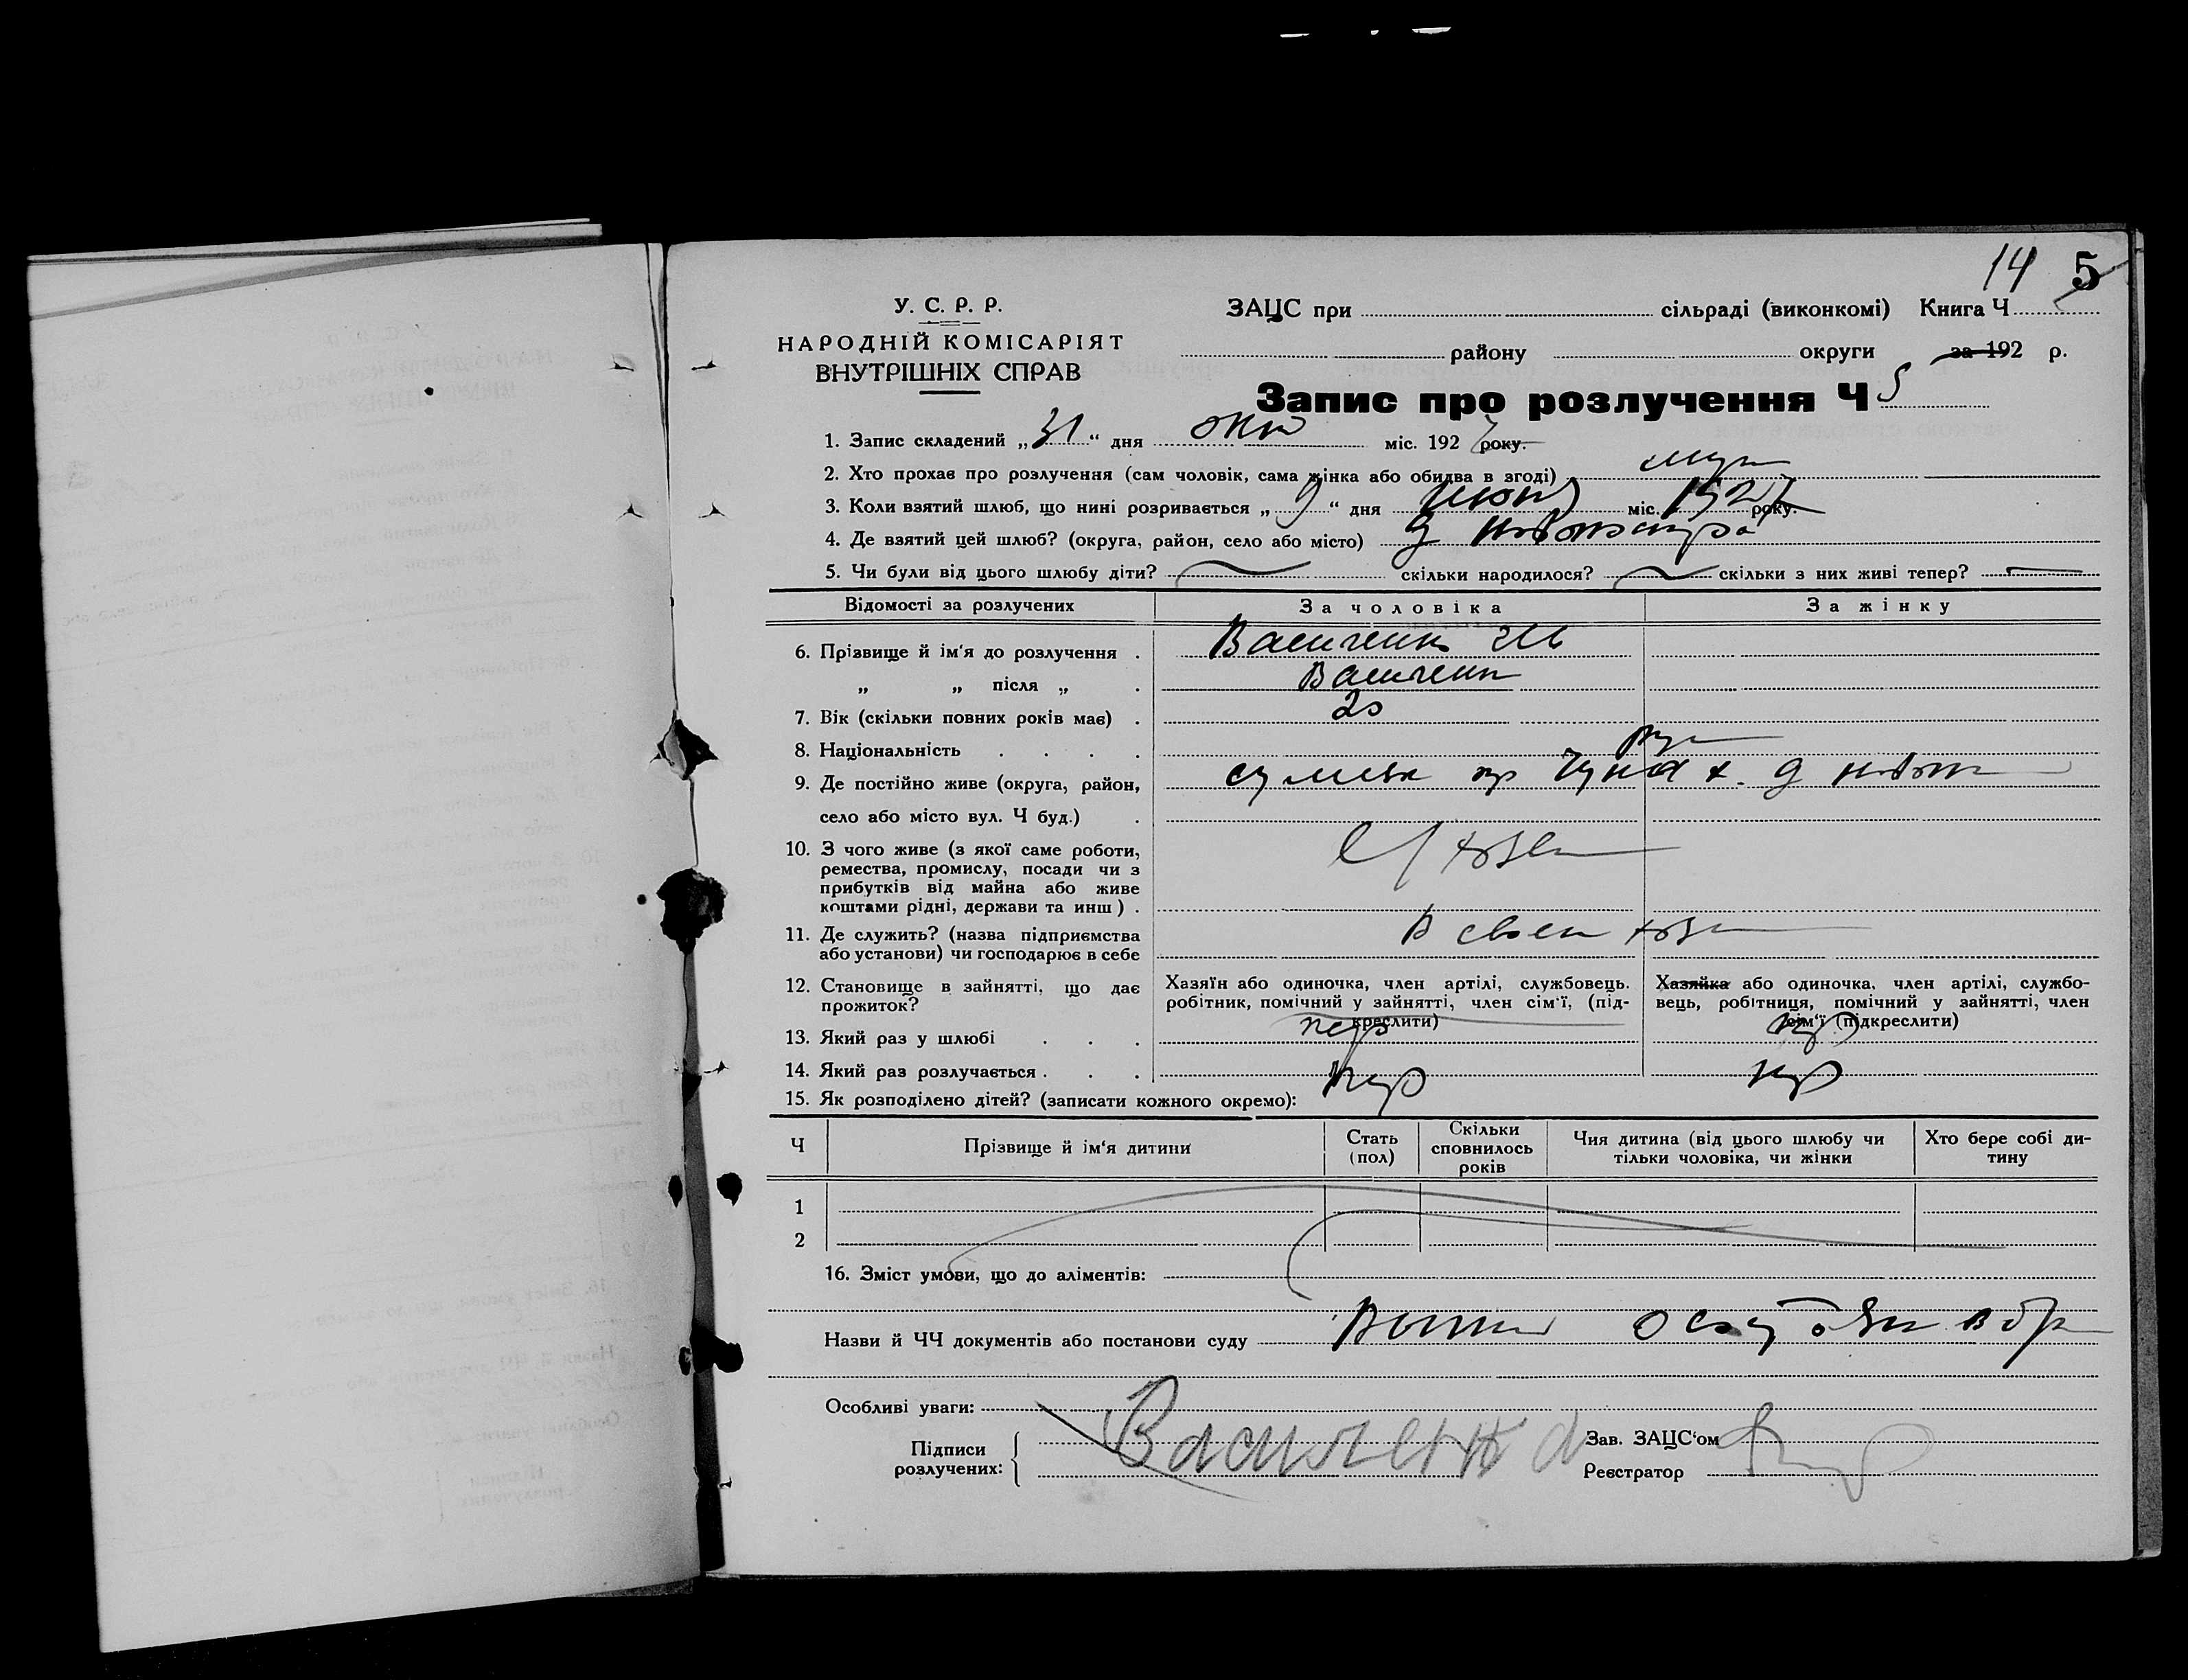 14 5
У. С. Р. Р.
НАРОДНІЙ КОМІСАРІЯТ
ВНУТРІШНІХ СПРАВ
ЗАЦС при сільраді (виконкомі) Книга Ч
району округи за 192 р.
Запис про розлучення Ч 5
1. Запис складений „31“ дня окт міс. 1927 року.
2. Хто прохає про розлучення (сам чоловік, сама жінка або обидва в згоді) муж
3. Коли взятий шлюб, що нині розривається „9“ дня міс. 1927 року.
4. Де взятий цей шлюб? (округа, район, село або місто) д
5. Чи були від цього шлюбу діти? скільки народилося? скільки з них живі тепер?
Відомості за розлучених За чоловіка За жінку
6. Прізвище й ім'я до розлучення . Василенко
„ „ після „ . Василенк
7. Вік (скільки повних років має) . 20
8. Національність . . . .
9. Де постійно живе (округа, район, д
село або місто вул. Ч буд.) .
10. З чого живе (з якої саме роботи,
ремества, промислу, посади чи з
прибутків від майна або живе
коштами рідні, держави та инш) .
11. Де служить? (назва підприємства в своем
або установи) чи господарює в себе
12. Становище в зайнятті, що дає прожиток?
Хазяїн або одиночка, член артілі, службовець. робітник, помічний у зайнятті, член сім'ї, (підкреслити)
Хазяйка або одиночка, член артілі, службовець, робітниця, помічний у зайнятті, член сім'ї (підкреслити)
13. Який раз у шлюбі . . . пер пер
14. Який раз розлучається . . . пер пер
15. Як розподілено дітей? (записати кожного окремо):
Ч Прізвище й ім'я дитини Стать (пол) Скільки сповнилось років Чия дитина (від цього шлюбу чи тільки чоловіка, чи жінки Хто бере собі дитину
1
2
16. Зміст умови, що до аліментів:
Назви й ЧЧ документів або постанови суду
Особливі уваги:
Підписи розлучених: Василенко
Зав. ЗАЦС'ом
Реєстратор